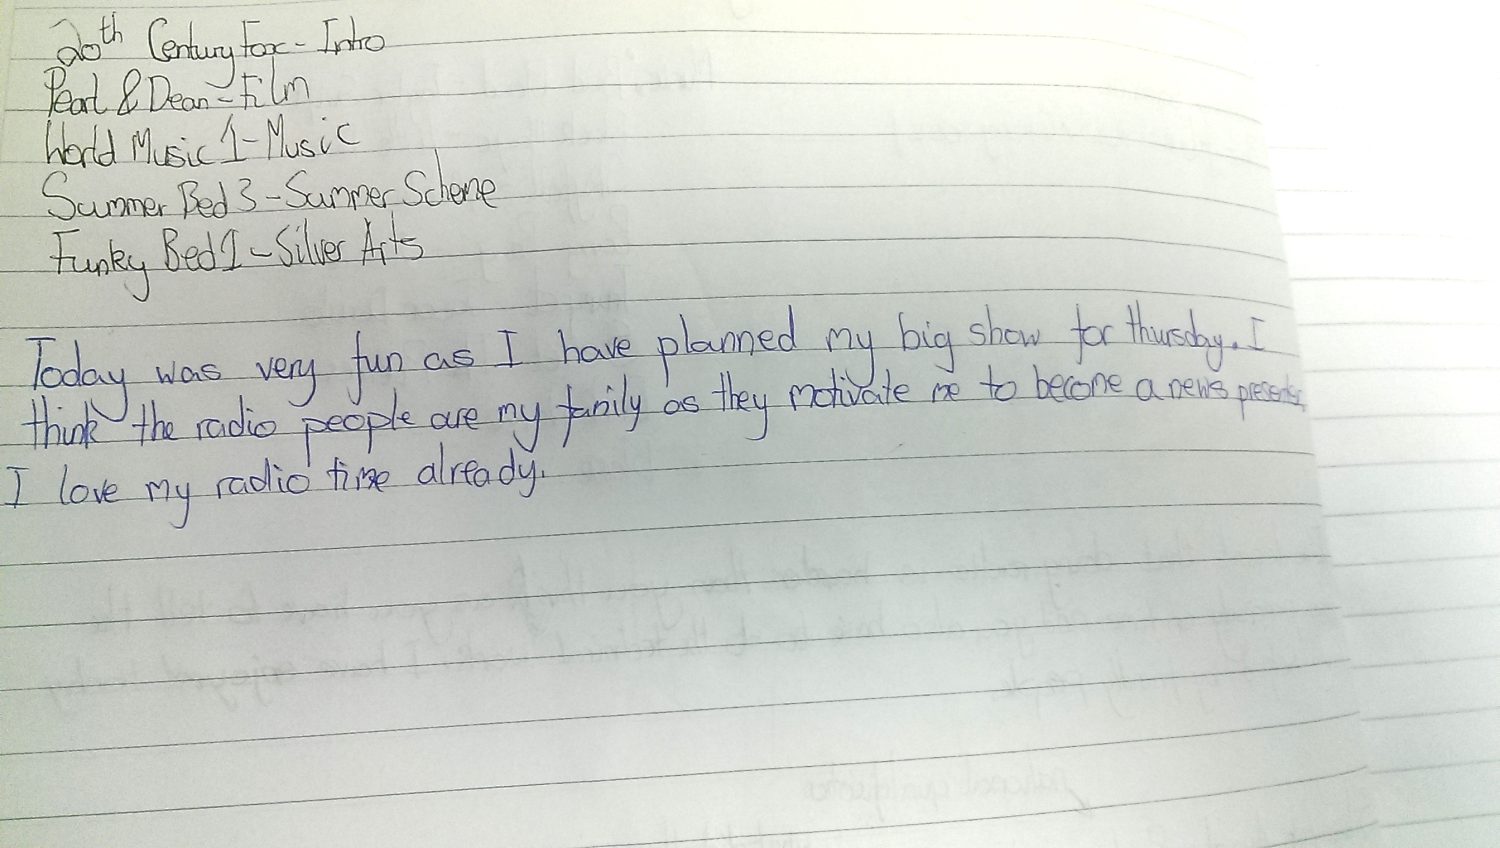 20th Century Fox - Intro
Pearl & Dean - Film
World Music 1 - Music
Summer Bed 3 - Summer Scheme
Funky Bed 1 - Silver Arts
Today was very fun as I have planned my big show for thursday. I
think the radio people are my family as they motivate me to become a news presenter.
I love my radio time already.